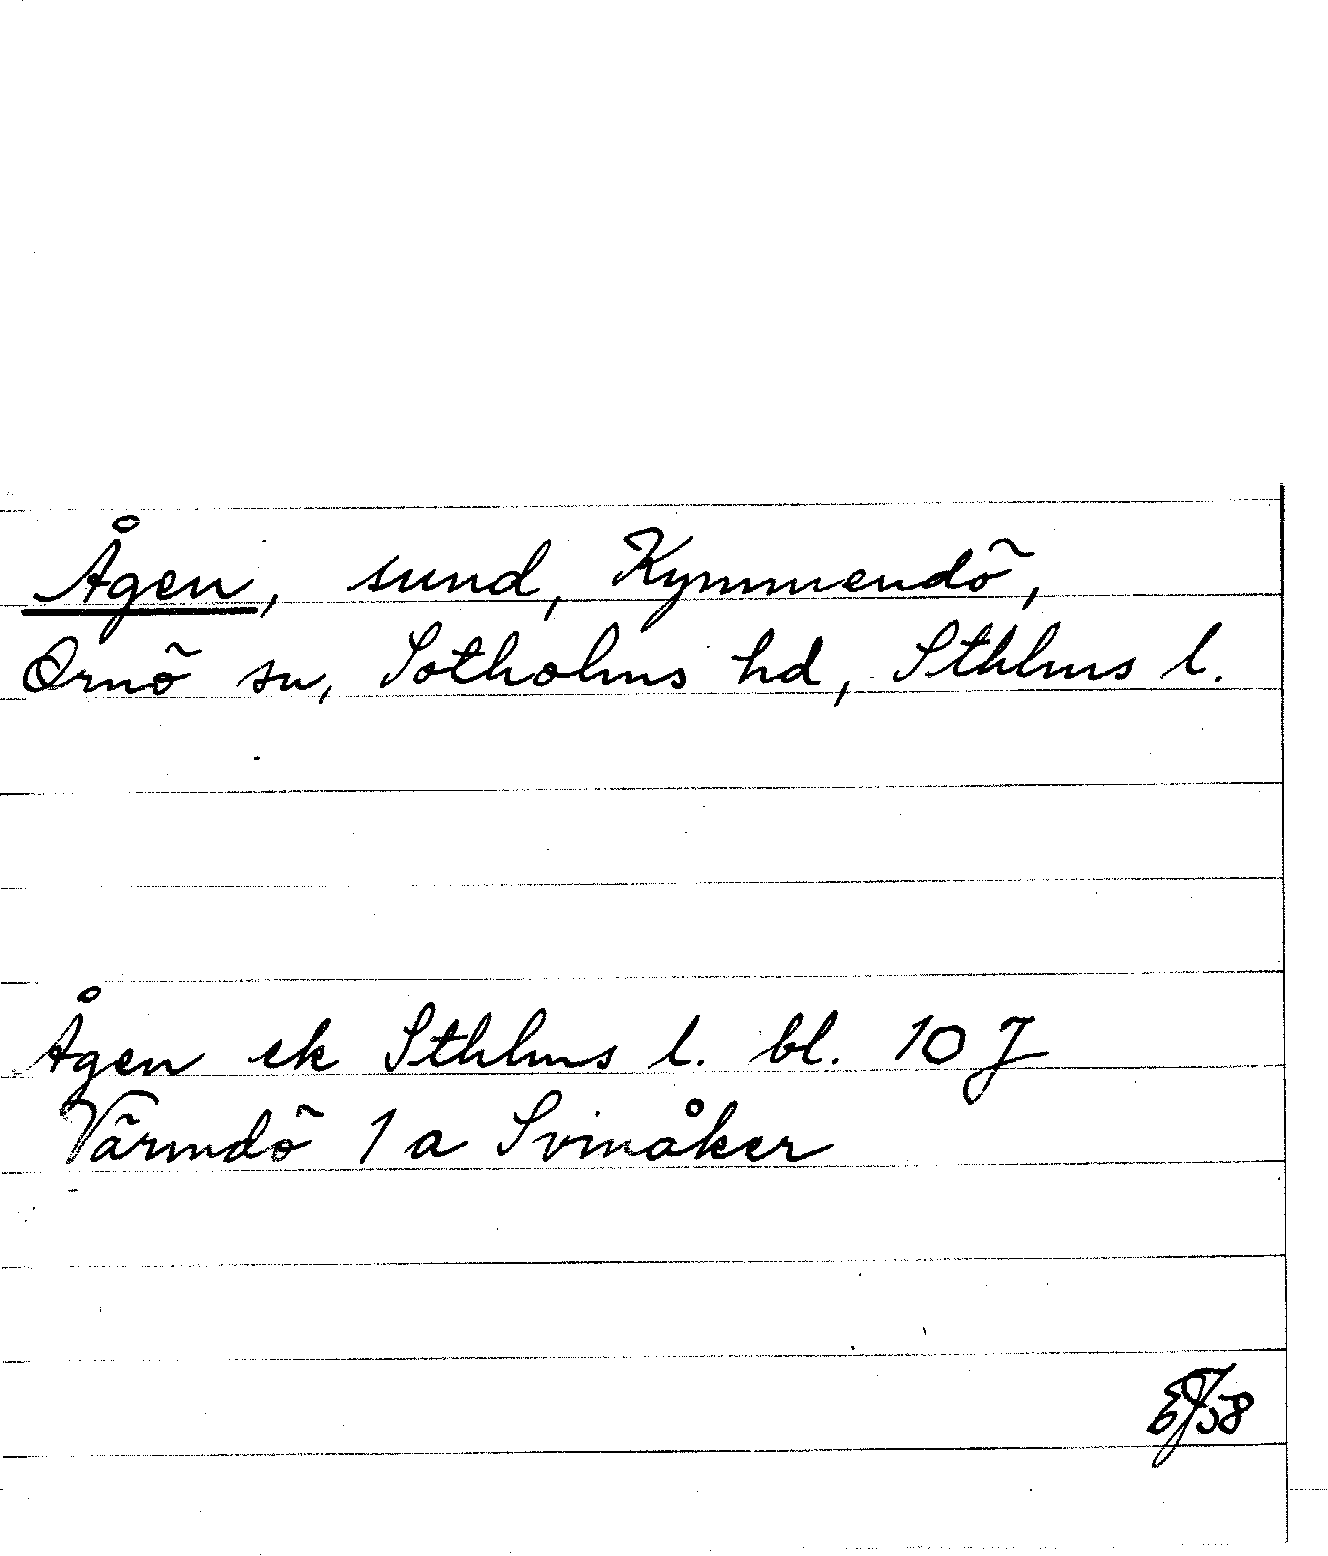 Ågen, sund, Kymmendö,
Ornö sn, Sotholms hd, Sthlms l.
Ågen ek Sthlms l. bl. 10 J
Värmdö 1 a Svinåker
EJ58